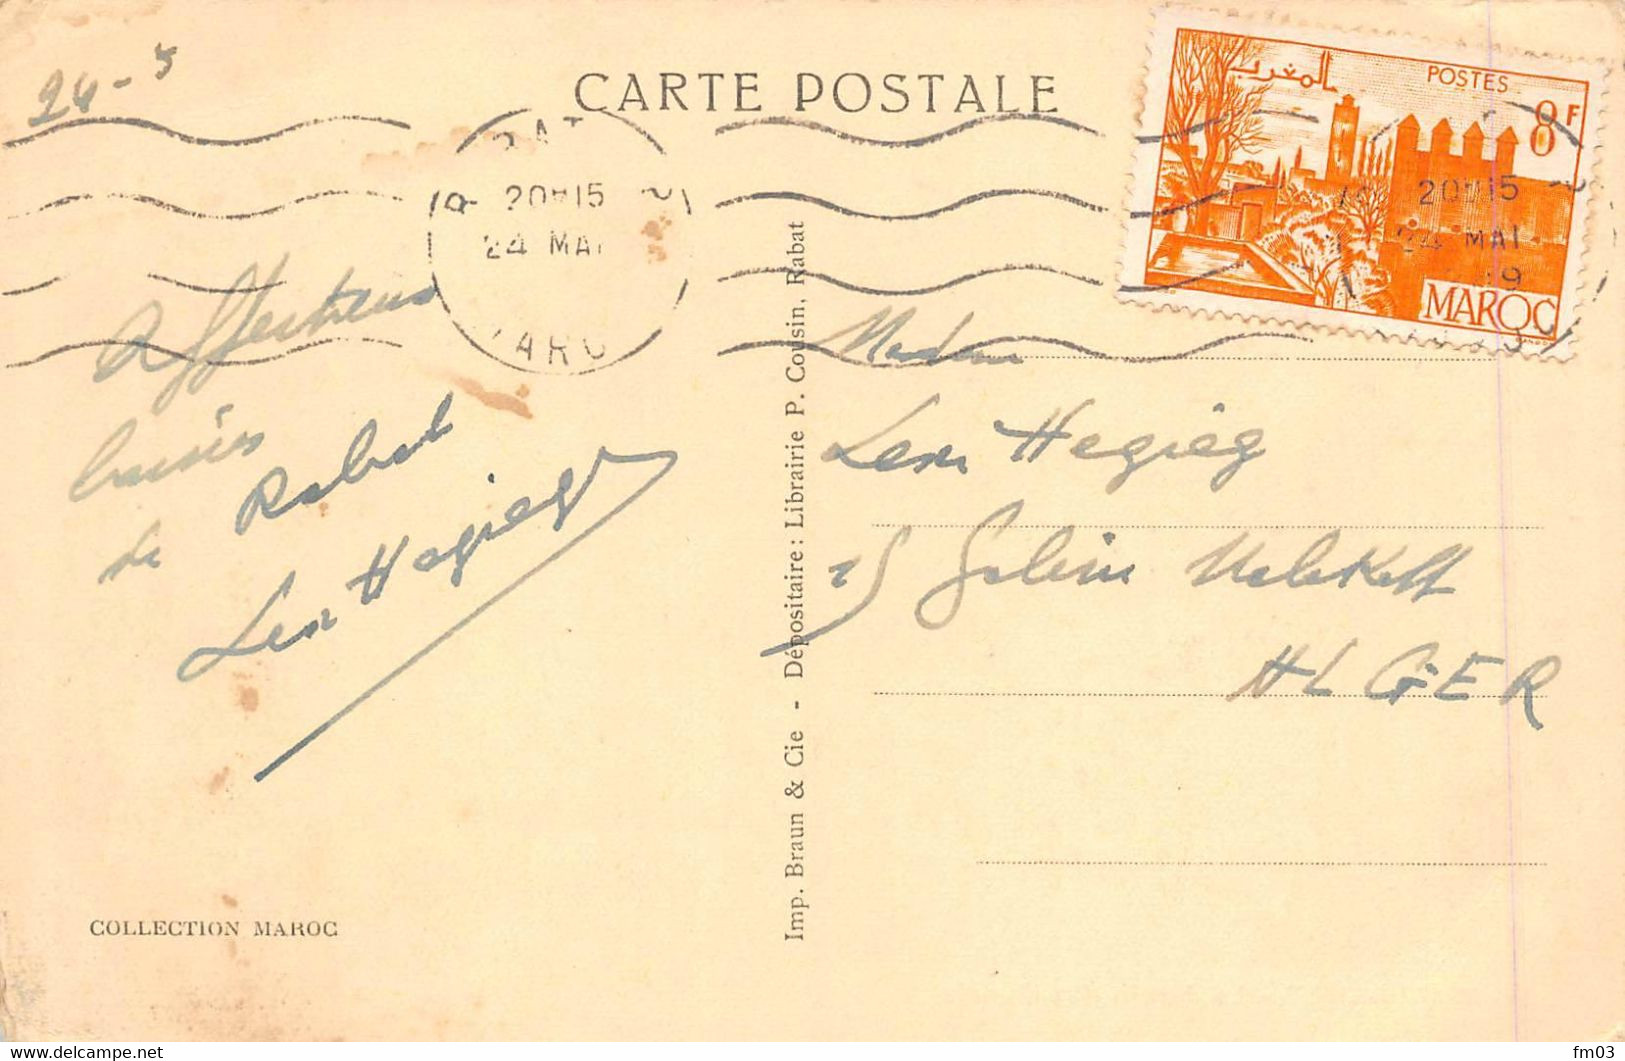 24-5
CARTE POSTALE
RABAT
20H15
24 MAI
MAROC
المغرب
POSTES
8F
20H15
24 MAI
19
MAROC
Affectueux
baisers
de Rabat
Len Hegieg
Madame
Len Hegieg
15 Malakoff
ALGER
Imp. Braun & Cie - Dépositaire: Librairie P. Cousin, Rabat
COLLECTION MAROC
fm03